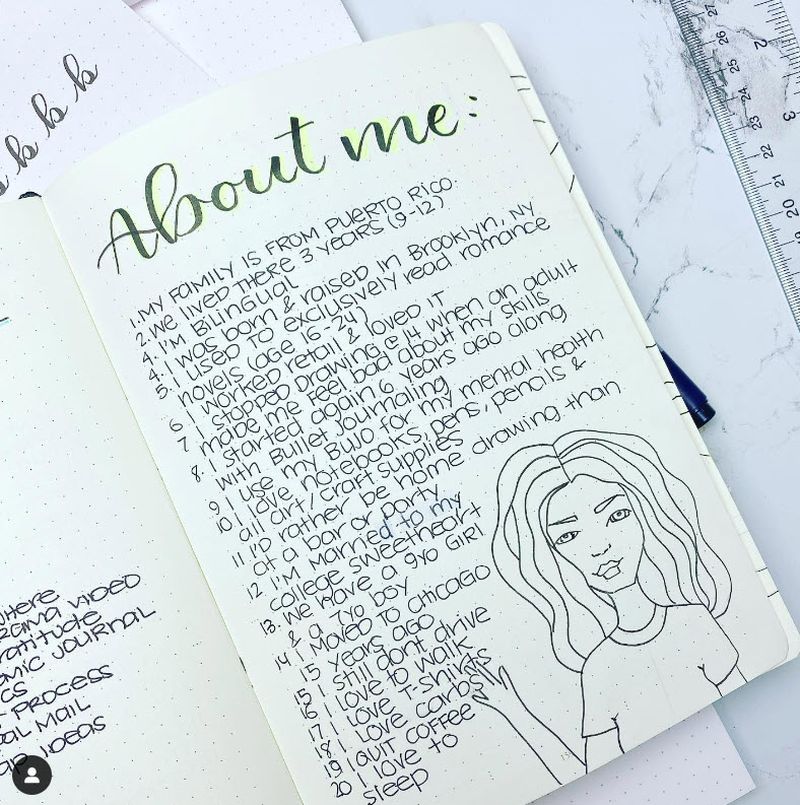 b b b b
About me:
1. MY FAMILY IS FROM PUERTO RICO.
2. WE LIVED THERE 3 YEARS (9-12)
4. I'M BILINGUAL
4. I WAS BORN & RAISED IN BROOKLYN, NY
5. I USED TO EXCLUSIVELY READ ROMANCE
NOVELS (AGE 16-24)
6 I WORKED RETAIL & LOVED IT
7 I STOPPED DRAWING @ 14 WHEN AN ADULT
MADE ME FEEL BAD ABOUT MY SKILLS
8. I STARTED AGAIN 6 YEARS AGO ALONG
WITH BULLET JOURNALING
9 I USE MY BUJO FOR MY MENTAL HEALTH
10 I LOVE NOTEBOOKS, PENS, PENCILS &
ALL ART/CRAFT SUPPLIES
11 I'D RATHER BE HOME DRAWING THAN
AT A BAR OR PARTY
12 I'M MARRIED TO MY
COLLEGE SWEETHEART
13. WE HAVE A 9YO GIRL
& A 7YO BOY
14 I MOVED TO CHICAGO
15 YEARS AGO
15 I STILL DONT DRIVE
16 I LOVE TO WALK
17 I LOVE T-SHIRTS
18 I LOVE CARBS
19 I QUIT COFFEE
20 I LOVE TO
SLEEP
HERE
VIDEO
RATITUDE
MIC JOURNAL
CS
PROCESS
MAIL
IDEAS
27
26
25
24
23
22
21
20
19
2
3